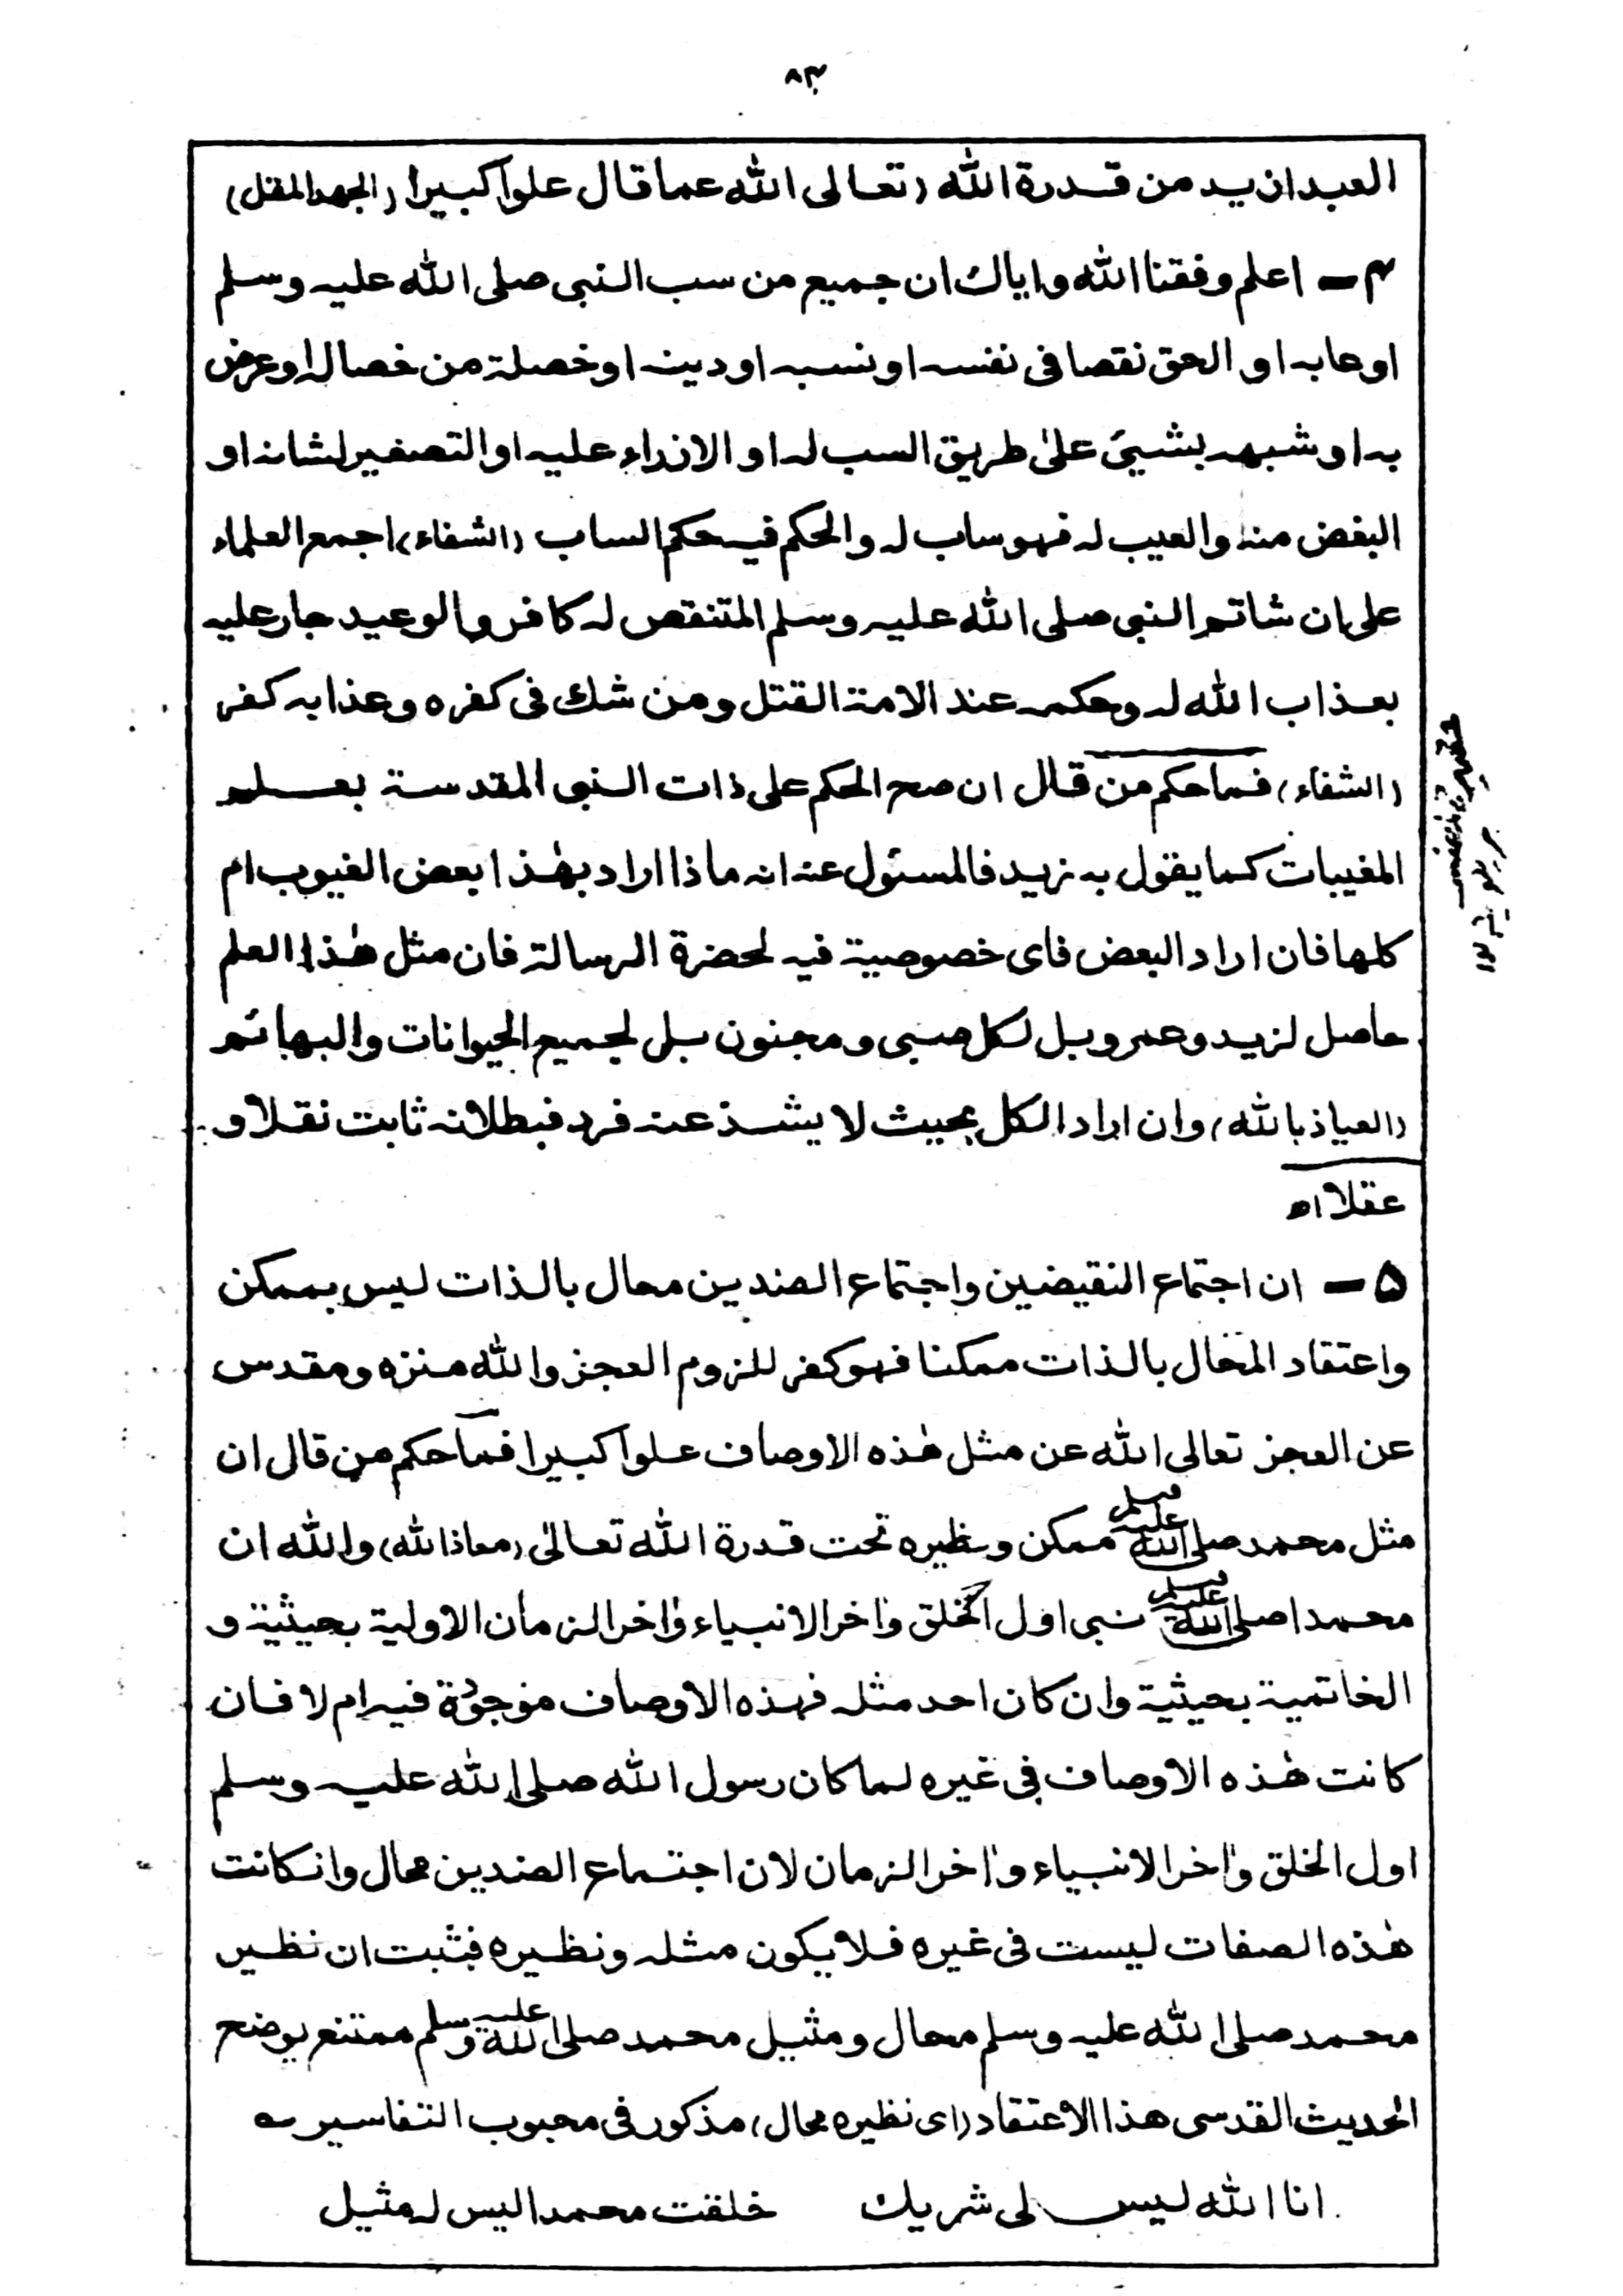 ۸۳
العبد ازید من قدرة الله (تعالی الله عما قال علوا کبیرا (الجهد المقل)
۴ـ اعلم وفقنا الله وایاك ان جمیع من سب النبی صلی الله علیه وسلم
او عابه او الحق نقصا فی نفسه او نسبه او دینه او خصلة من خصاله او عرض
به او شبهه بشیئ علیٰ طریق السب له او الازراء علیه او التصغیر لشانه او
البغض منه والعیب له فهو ساب له والحکم فیه حکم الساب (الشفاء) اجمع العلماء
علی ان شاتم النبی صلی الله علیه وسلم المتنقص له کافر والوعید جار علیه
بعذاب الله له وحکمه عند الامة القتل ومن شك فی کفره وعذابه کفر
(الشفاء) فما حکم من قال ان صح الحکم علی ذات النبی المقدسة بعلم
المغیبات کما یقول به زید فالمسئول عنه انه ماذا اراد بهٰذا بعض الغیوب ام
کلها فان اراد البعض فای خصوصیة فیه لحضرة الرسالة فان مثل هٰذا العلم
حاصل لزید وعمرو بل لکل صبی ومجنون بل لجمیع الحیوانات والبهائم
(العیاذ بالله) وان اراد الکل بحیث لا یشذ عنه فرد فبطلانه ثابت نقلا و
عقلا اه
۵ـ ان اجتماع النقیضین واجتماع الضدین محال بالذات لیس بممکن
واعتقاد المحال بالذات ممکنا فهو کفر للزوم العجز والله منزه ومقدس
عن العجز تعالی الله عن مثل هٰذه الاوصاف علوا کبیرا فما حکم من قال ان
مثل محمد صلی الله علیه وسلم ممکن ونظیره تحت قدرة الله تعالیٰ (معاذ الله) والله ان
محمدا صلی الله علیه وسلم نبی اول الخلق واٰخر الانبیاء واٰخر الزمان الاولیة بحیثیة و
الخاتمیة بحیثیة وان کان احد مثله فهذه الاوصاف موجودة فیه ام لا فان
کانت هٰذه الاوصاف فی غیره لما کان رسول الله صلی الله علیه وسلم
اول الخلق واٰخر الانبیاء واٰخر الزمان لان اجتماع الضدین محال وانکانت
هٰذه الصفات لیست فی غیره فلا یکون مثله ونظیره فثبت ان نظیر
محمد صلی الله علیه وسلم محال ومثیل محمد صلی الله علیه وسلم ممتنع یوضح
الحدیث القدسی هذا الاعتقاد (ای نظیره محال) مذکور فی محبوب التفاسیر ؎
انا الله لیس لی شریك خلقت محمدا لیس له مثیل